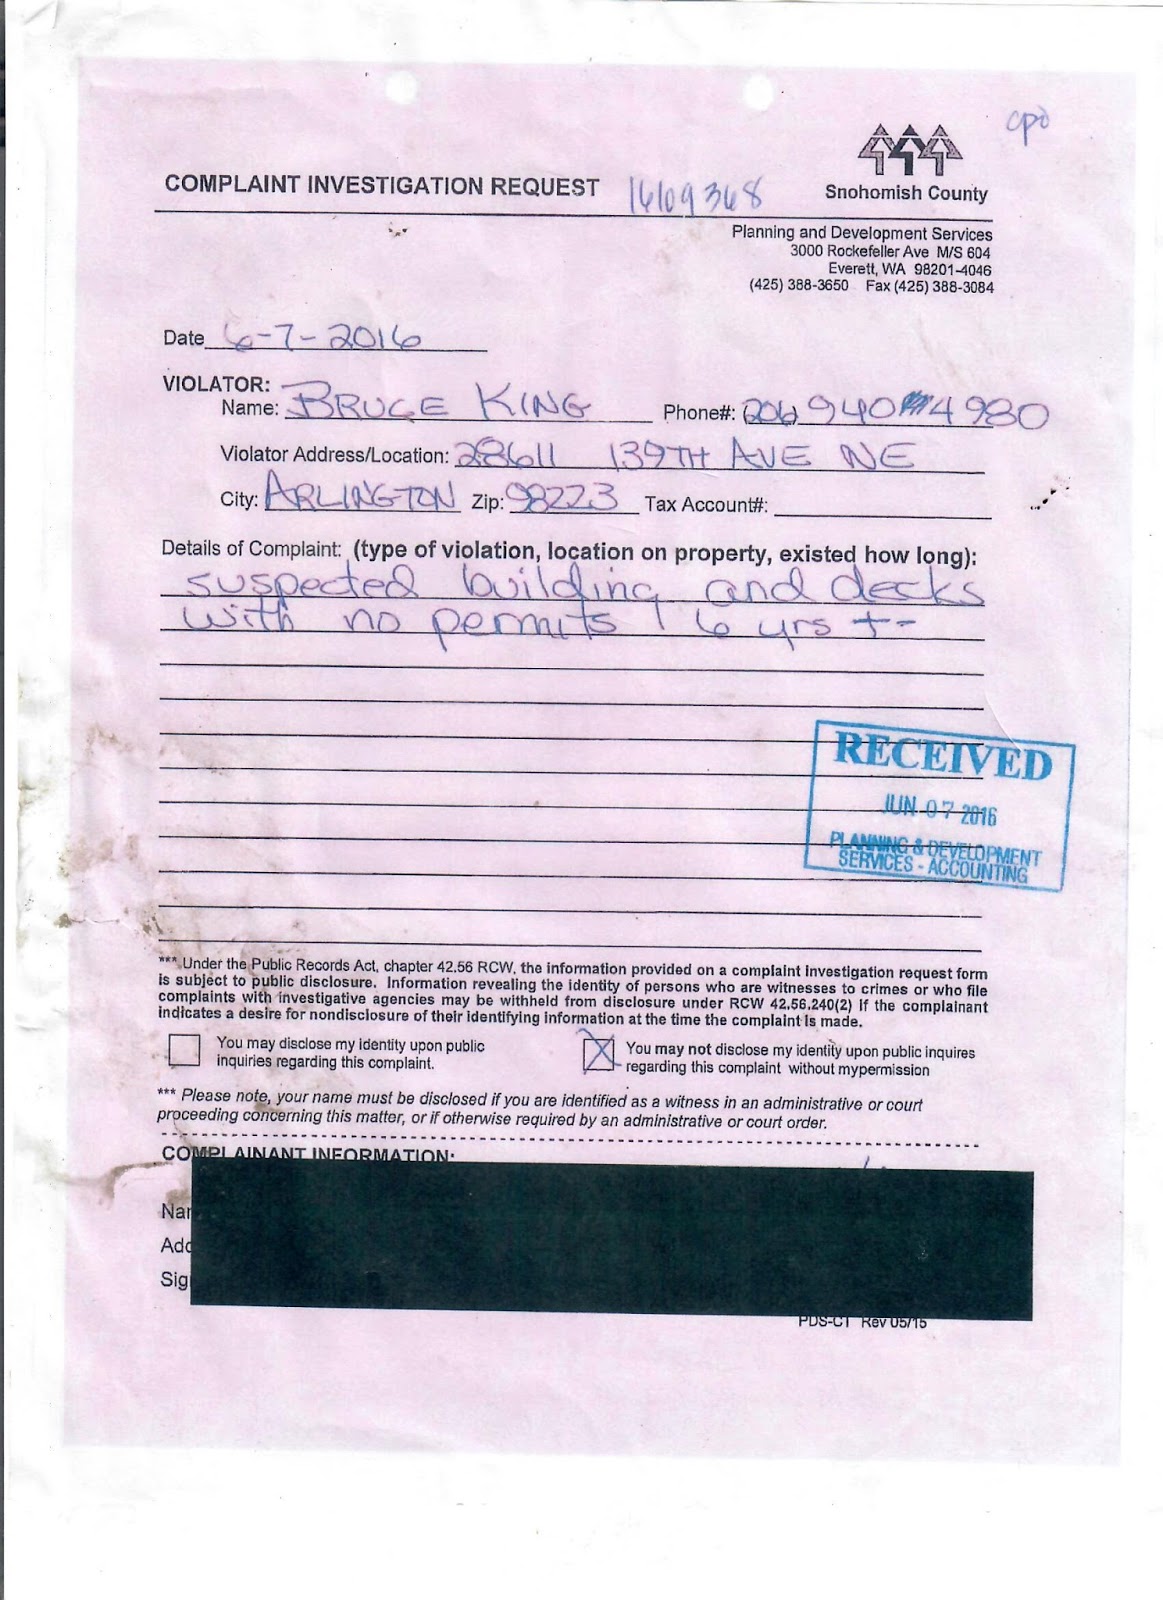 cpo
COMPLAINT INVESTIGATION REQUEST 16109368
Snohomish County
Planning and Development Services
3000 Rockefeller Ave M/S 604
Everett, WA 98201-4046
(425) 388-3650 Fax (425) 388-3084
Date 6-7-2016
VIOLATOR:
Name: BRUCE KING Phone#: 206 940 4980
Violator Address/Location: 28611 139TH AVE NE
City: ARLINGTON Zip: 98223 Tax Account#:
Details of Complaint: (type of violation, location on property, existed how long):
suspected building and decks
with no permits 6 yrs +-
RECEIVED
JUN 07 2016
PLANNING & DEVELOPMENT
SERVICES - ACCOUNTING
*** Under the Public Records Act, chapter 42.56 RCW, the information provided on a complaint investigation request form
is subject to public disclosure. Information revealing the identity of persons who are witnesses to crimes or who file
complaints with investigative agencies may be withheld from disclosure under RCW 42.56.240(2) if the complainant
indicates a desire for nondisclosure of their identifying information at the time the complaint is made.
You may disclose my identity upon public
inquiries regarding this complaint.
You may not disclose my identity upon public inquires
regarding this complaint without mypermission
*** Please note, your name must be disclosed if you are identified as a witness in an administrative or court
proceeding concerning this matter, or if otherwise required by an administrative or court order.
COMPLAINANT INFORMATION:
Nar
Add
Sig
PDS-CT Rev 05/15